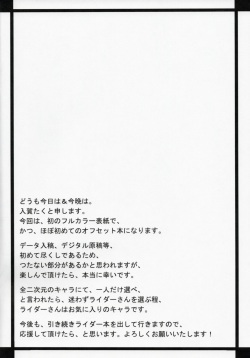 どうも今日は＆今晩は。
入賀たくと申します。
今回は、初のフルカラー表紙で、
かつ、ほぼ初めてのオフセット本になります。
データ入稿、デジタル原稿等、
初めて尽くしであるため、
つたない部分があるかと思われますが、
楽しんで頂けたら、本当に幸いです。
全二次元のキャラにて、一人だけ選べ、
と言われたら、迷わずライダーさんを選ぶ程、
ライダーさんはお気に入りのキャラです。
今後も、引き続きライダー本を出して行きますので、
応援して頂けたら、と思います。よろしくお願いいたします！